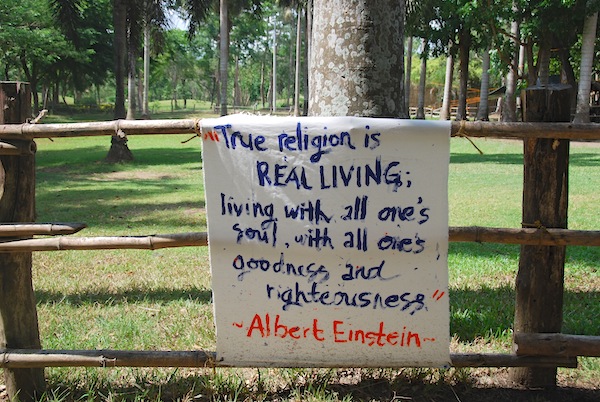 "True religion is
REAL LIVING;
living with all one's
soul, with all one's
goodness and
righteousness"
~Albert Einstein~